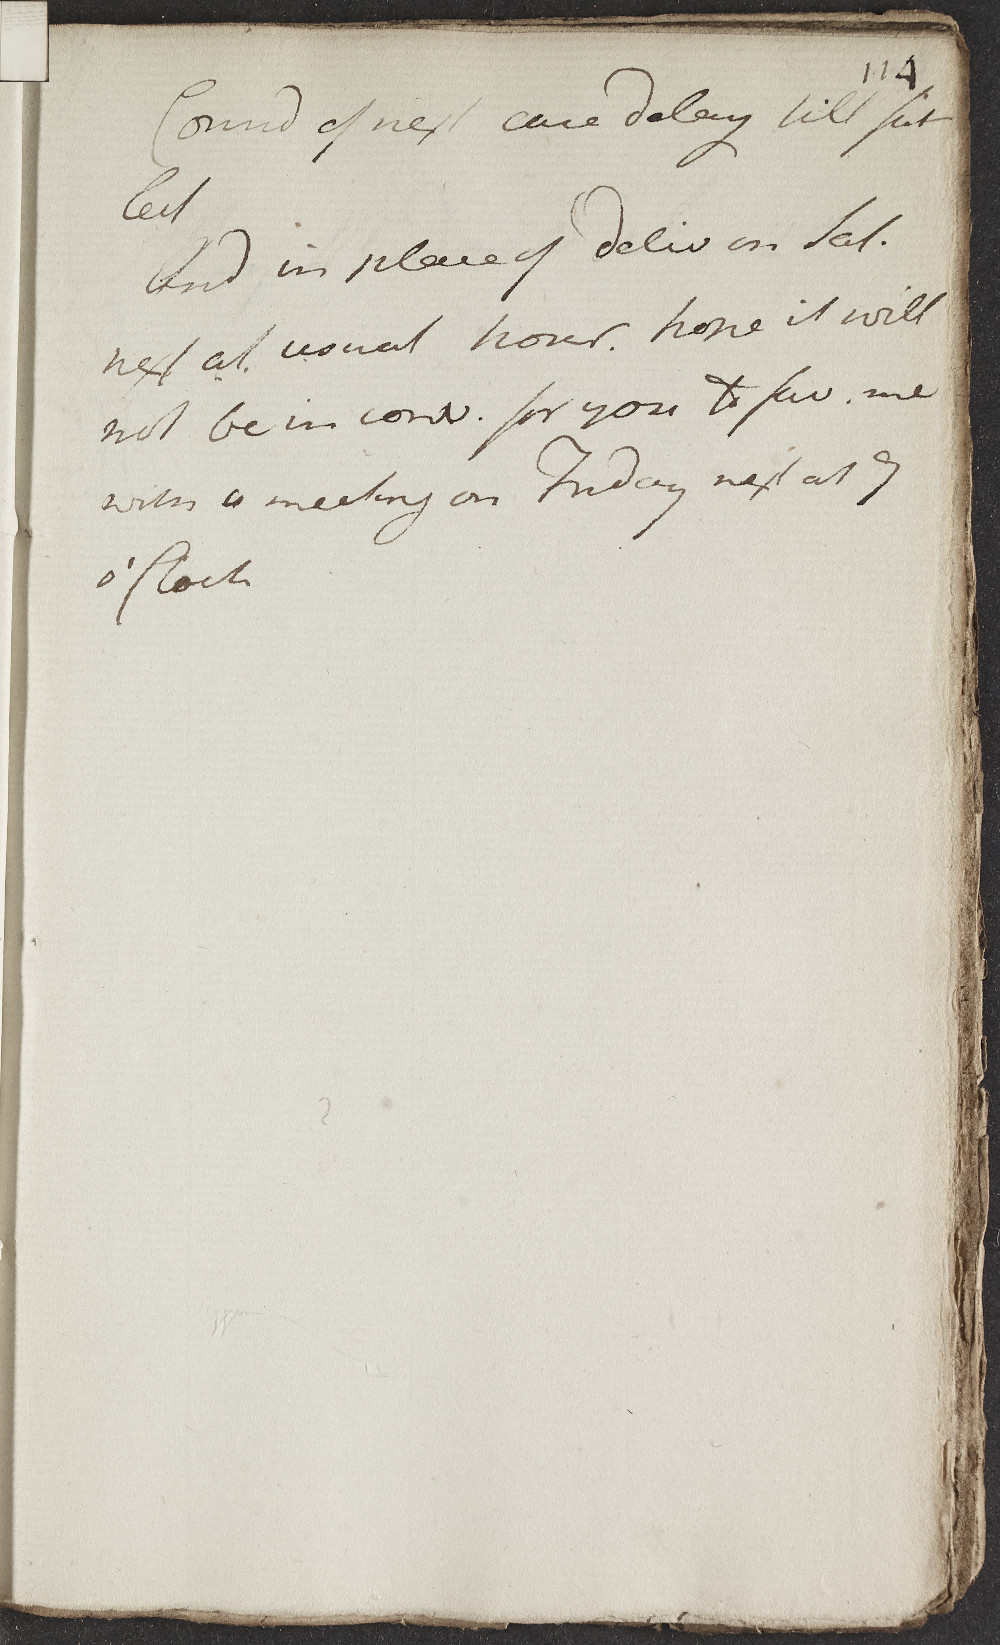 114
Consid of next case delay till fut
lect
And in place of deliv on Sat.
next at. usual hour. hope it will
not be in conv. for you to fav. me
with a meeting on Friday next at 7
o'Clock